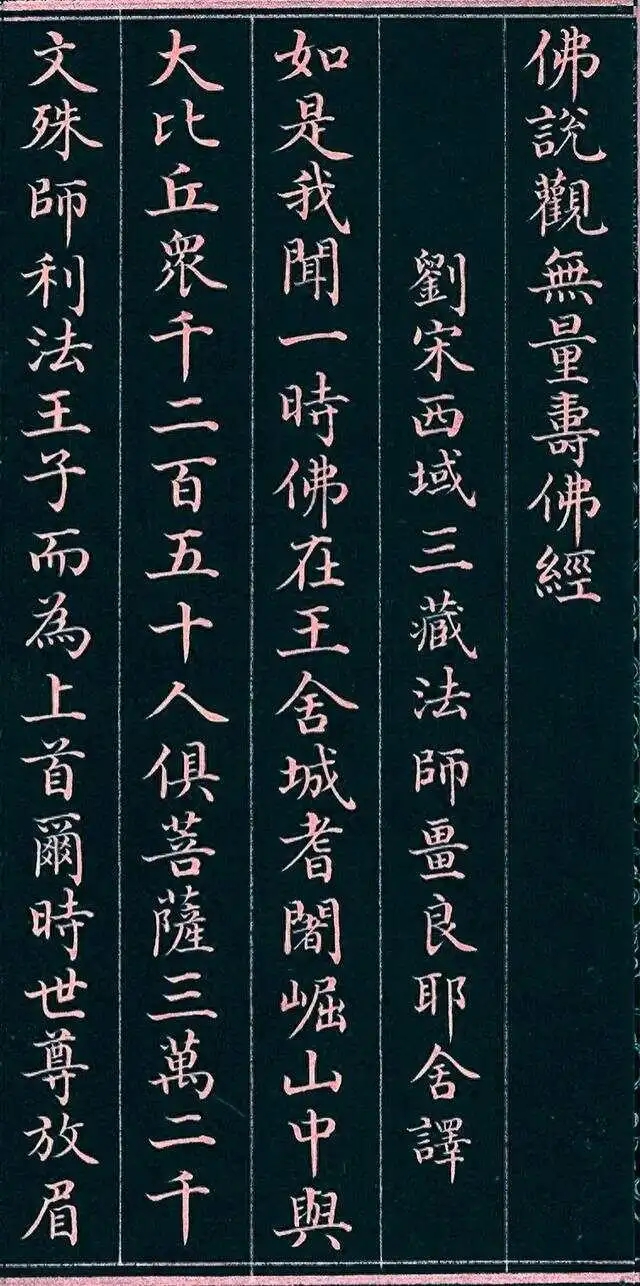 佛說觀無量壽佛經
劉宋西域三藏法師畺良耶舍譯
如是我聞一時佛在王舍城耆闍崛山中與
大比丘衆千二百五十人俱菩薩三萬二千
文殊師利法王子而為上首爾時世尊放眉